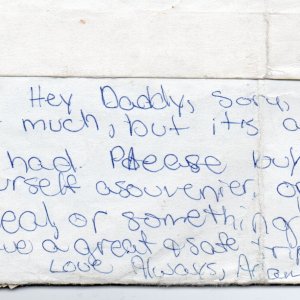 Hey Daddy, sorry,
much, but it's a
had. Please buy
urself asouvenier, o
eal, or something
ve a great & safe trip
Love Always, Arian